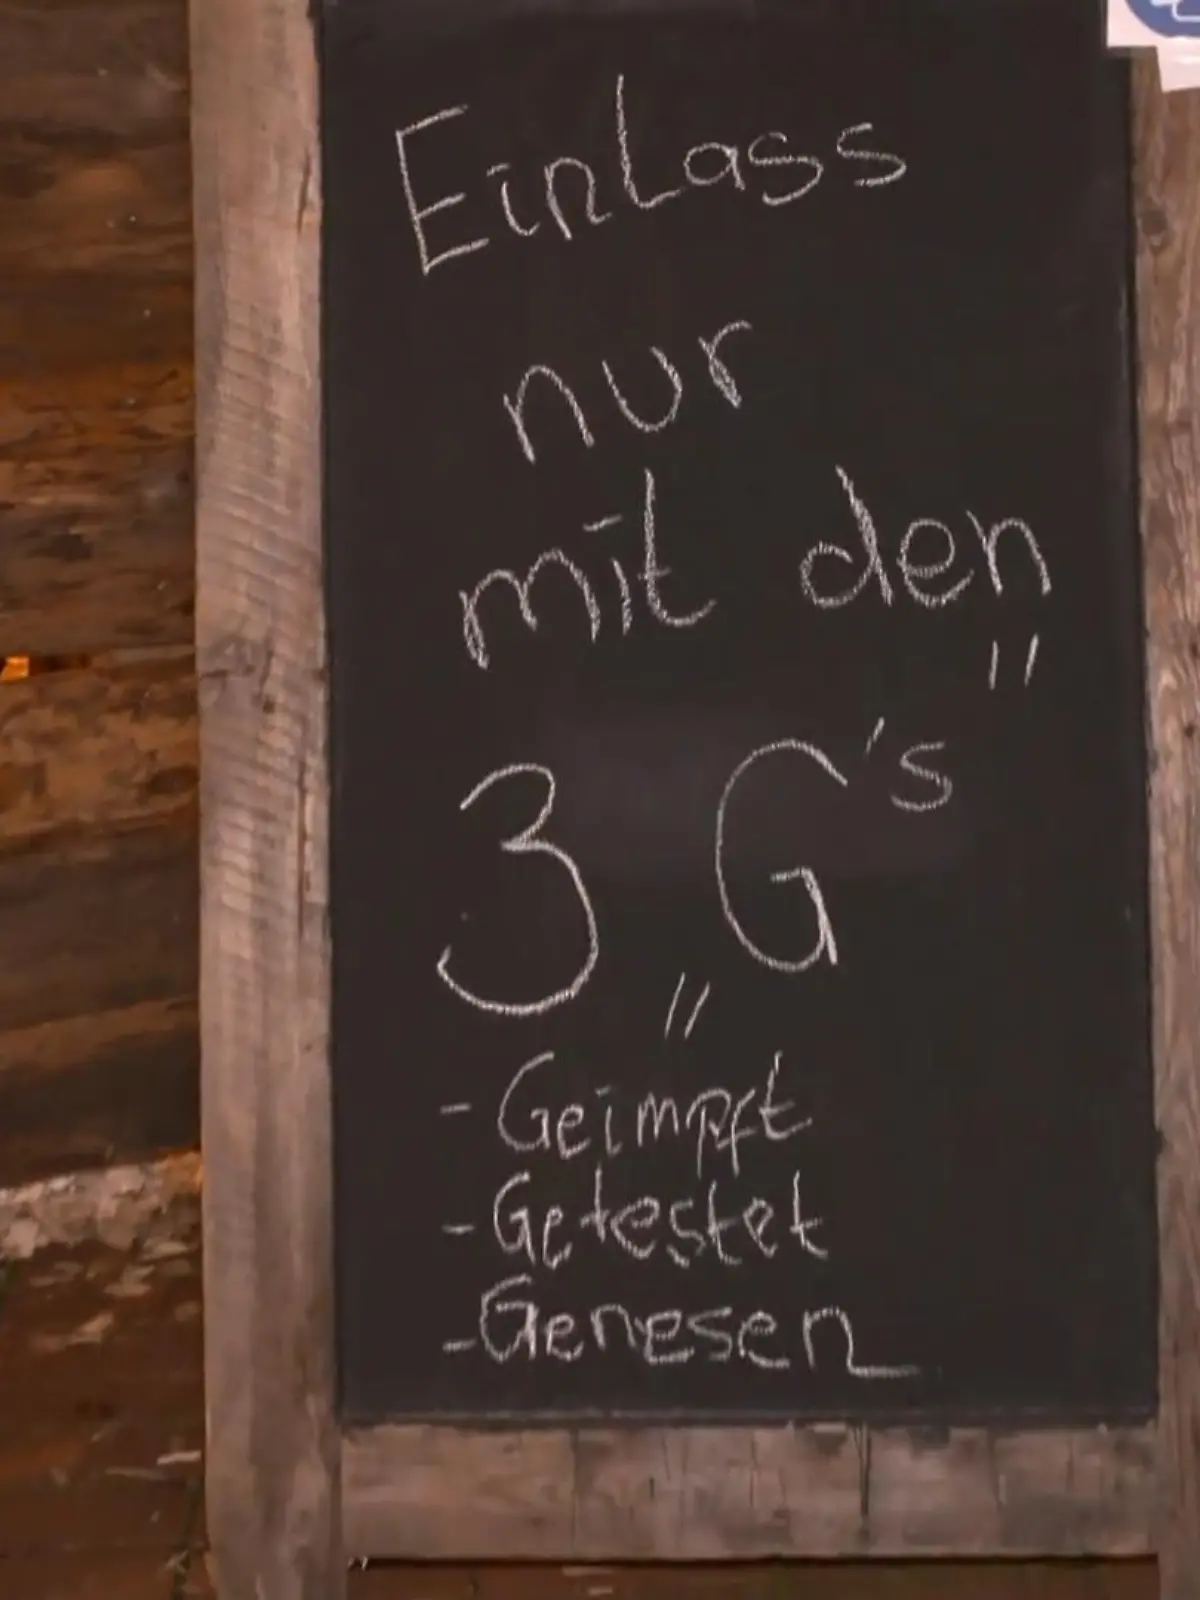 Einlass
nur
mit den
„3 G's"
- Geimpft
- Getestet
- Genesen